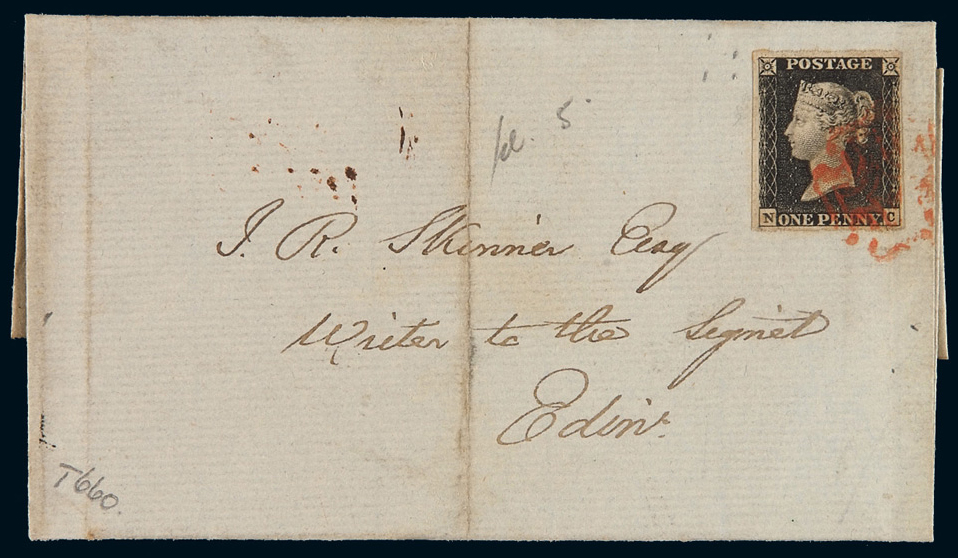 POSTAGE
N ONE PENNY. C
pl. 5
J. R. Skinner Esq
Writer to the Signet
Edinr.
T660.